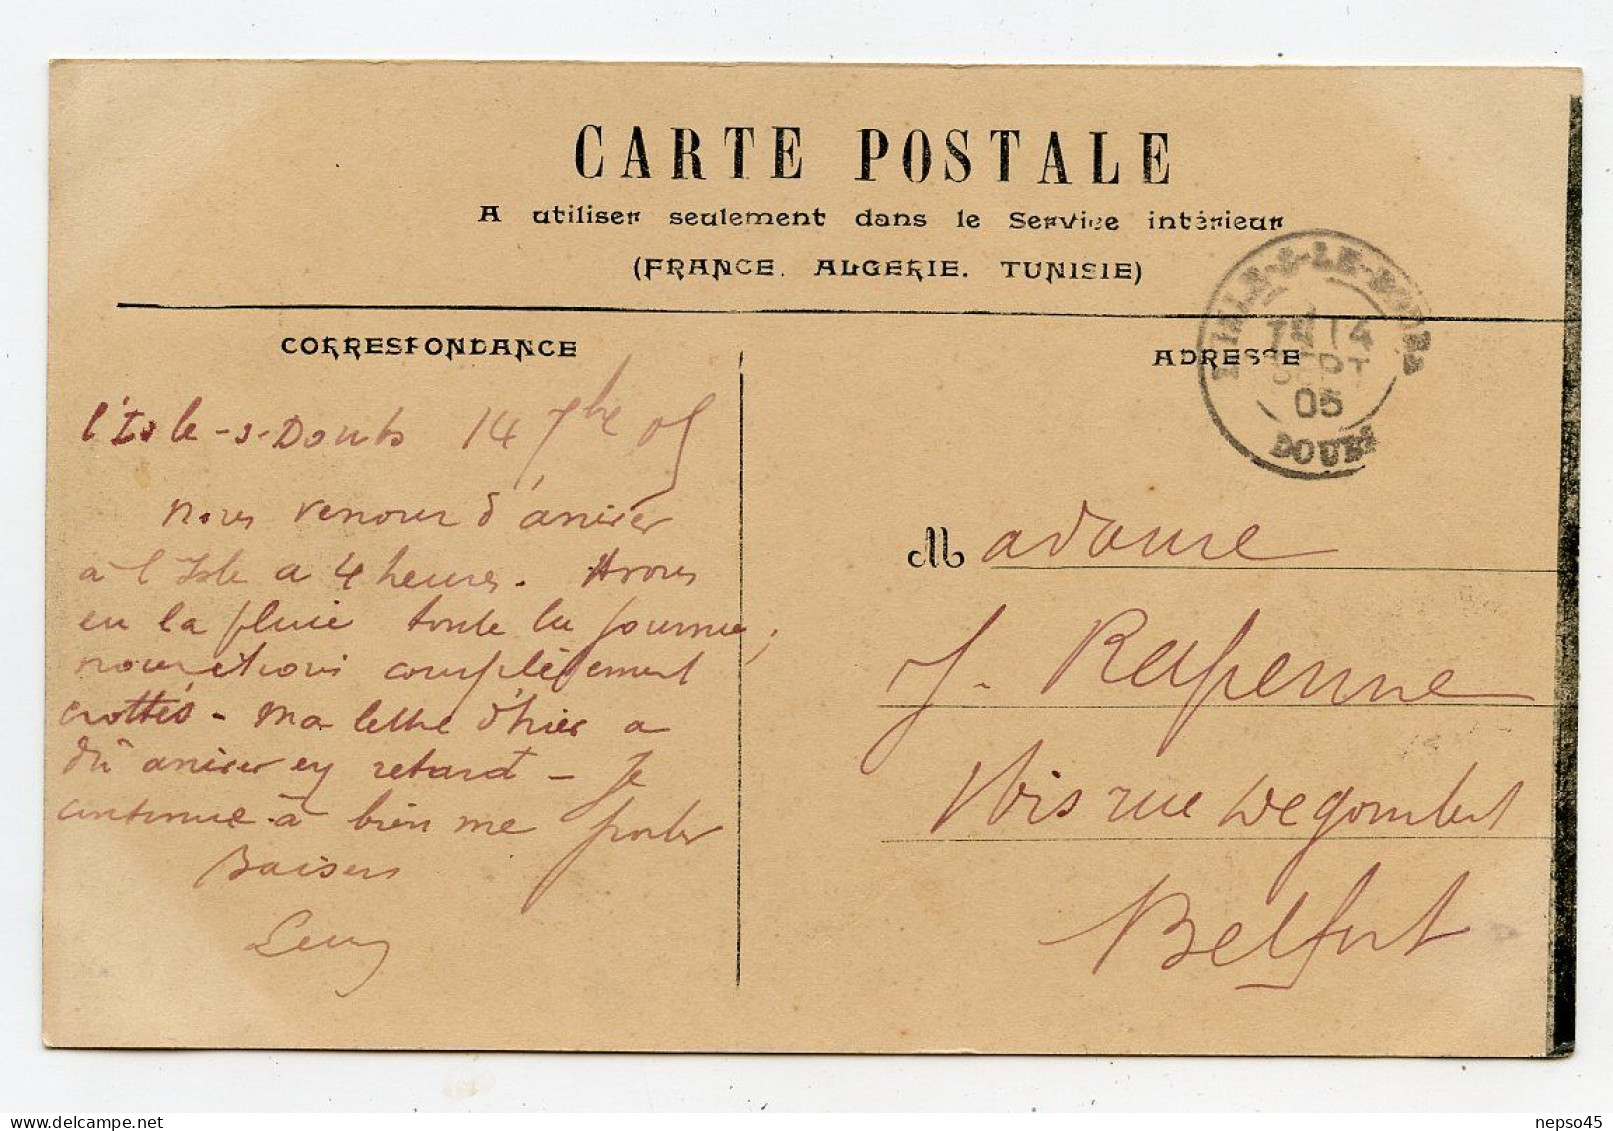 CARTE POSTALE
A utiliser seulement dans le Service intérieur
(FRANCE. ALGERIE. TUNISIE)
CORRESPONDANCE
l'Isle-s-Doubs 14 7bre 05
Nous venons d'arriver
à l'Isle a 4 heures. Avons
eu la pluie toute la journée;
nous étions complètement
crottés - Ma lettre d'hier a
dû arriver en retard - Je
continue à bien me porter
Baisers
ADRESSE
14
SEPT
05
DOUBS
Madame
J. Rapenne
rue
Belfort
nepso45